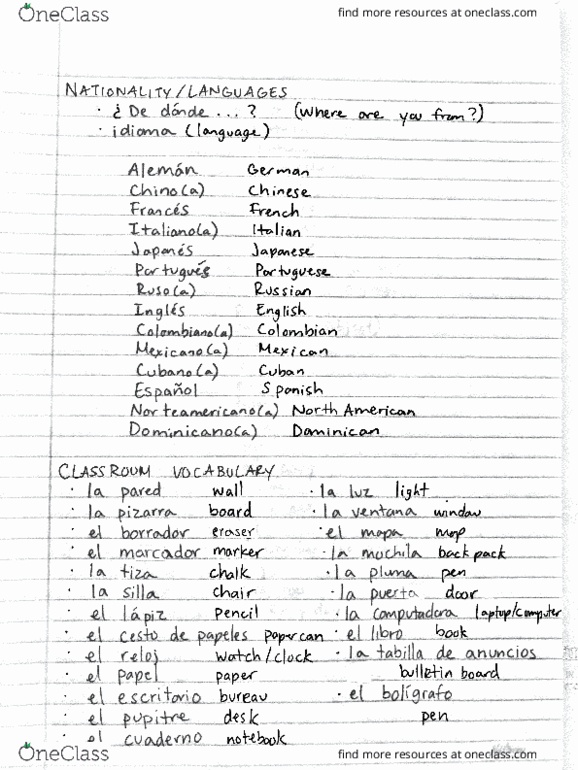 OneClass find more resources at oneclass.com
NATIONALITY/LANGUAGES
· ¿De dónde ... ? (Where are you from?)
· idioma (language)
Alemán German
Chino(a) Chinese
Francés French
Italiano(a) Italian
Japonés Japanese
Portugués Portuguese
Ruso(a) Russian
Inglés English
Colombiano(a) Colombian
Mexicano(a) Mexican
Cubano(a) Cuban
Español Spanish
Norteamericano(a) North American
Dominicano(a) Dominican
CLASSROUM VOCABULARY
· la pared wall · la luz light
· la pizarra board · la ventana window
· el borrador eraser · el mapa map
· el marcador marker · la muchila backpack
· la tiza chalk · la pluma pen
· la silla chair · la puerta door
· el lápiz pencil · la computadora laptop/computer
· el cesto de papeles papercan · el libro book
· el reloj watch/clock · la tabilla de anuncios
· el papel paper bulletin board
· el escritorio bureau · el bolígrafo
· el pupitre desk pen
· el cuaderno notebook
OneClass find more resources at oneclass.com